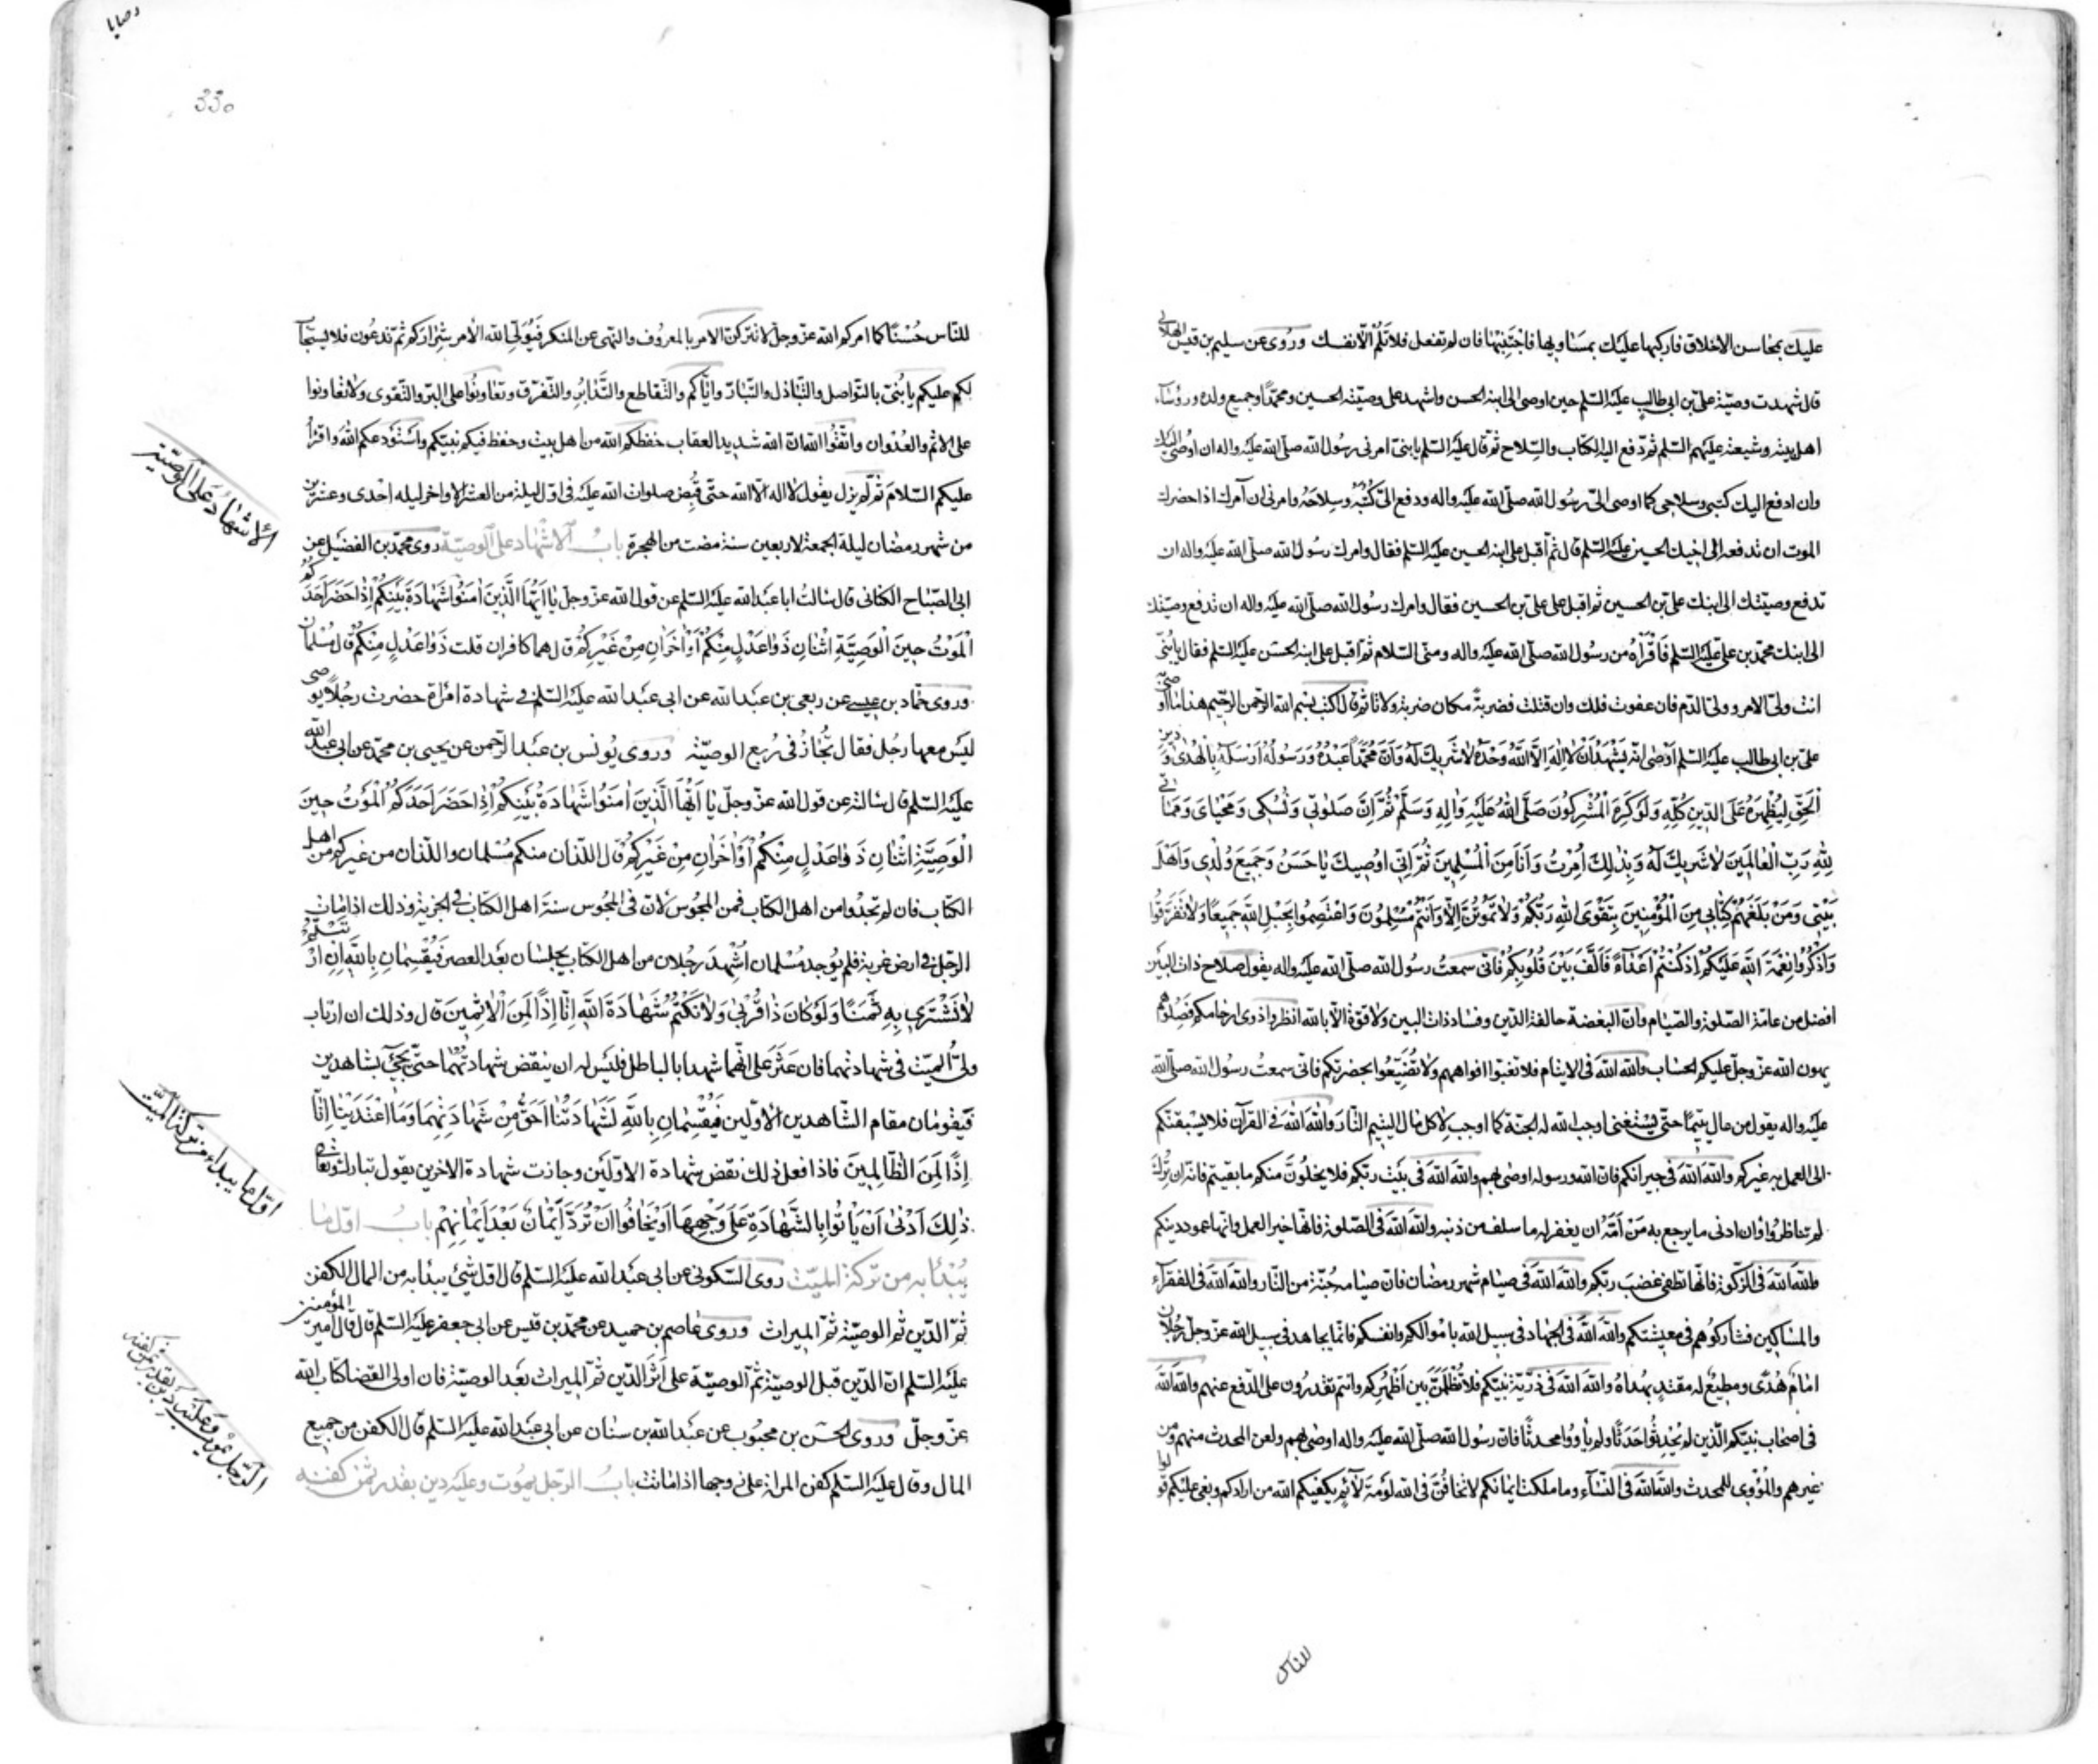 عليك بمحاسن الاخلاق فاركبها عليك بمساويها فاجتنبها فان لم تفعل فلا تلم الّا نفسك وروى عن سليم بن قيس الهلالى
قال شهدت وصيّة علىّ بن ابى طالب عليه السّلم حين اوصى الى ابنه الحسن واشهد على وصيّته الحسين ومحمّدًا وجميع ولده ورؤساء
اهل بيته وشيعته عليهم السّلم ثم دفع اليه الكتاب والسّلاح ثم قال عليه السّلم يا بنىّ امرنى رسول الله صلّى الله عليه واله ان اوصى اليك
وان ادفع اليك كتبى وسلاحى كما اوصى الىّ رسول الله صلّى الله عليه واله ودفع الىّ كتبه وسلاحه وامرنى ان آمرك اذا حضرك
الموت ان تدفعه الى اخيك الحسين عليه السّلم قال ثم أقبل على ابنه الحسين عليه السّلم فقال وامرك رسول الله صلّى الله عليه واله ان
تدفع وصيّتك الى ابنك علىّ بن الحسين ثم اقبل على علىّ بن الحسين فقال وامرك رسول الله صلّى الله عليه واله ان تدفع وصيّتك
الى ابنك محمّد بن علىّ عليه السّلم فَاقْرَأْهُ من رسول الله صلّى الله عليه واله ومنّى السّلام ثم اقبل على ابنه الحسن عليه السّلم فقال يا بُنَىّ
انت ولىّ الامر وولىّ الدّم فان عفوت فلك وان قتلت فضربةً مكان ضربة ولا تاثم ثم قال اكتب بسم الله الرّحمن الرّحيم هذا ما اوصى به
علىّ بن ابى طالب عليه السّلم أوْصٰى انّه يَشْهَدُ أَنْ لا اِلٰهَ اِلَّا اللَّهُ وَحْدَهُ لا شَرِيكَ لَهُ وَأَنَّ مُحَمَّدًا عَبْدُهُ وَرَسُولُهُ اَرْسَلَهُ بِالْهُدٰى وَ دِينِ
الْحَقِّ لِيُظْهِرَهُ عَلَى الدِّينِ كُلِّهِ وَلَوْ كَرِهَ الْمُشْرِكُونَ صَلَّى اللهُ عَلَيْهِ وَاٰلِهِ وَسَلَّمَ ثُمَّ اِنَّ صَلٰوتِى وَنُسُكِى وَمَحْيٰاىَ وَمَمٰاتِى
لِلّٰهِ رَبِّ الْعٰالَمِينَ لا شَرِيكَ لَهُ وَبِذٰلِكَ اُمِرْتُ وَاَنَا مِنَ الْمُسْلِمِينَ ثُمَّ اِنِّى اُوصِيكَ يٰا حَسَنُ وَجَمِيعَ وُلْدِى وَاَهْلَ
بَيْتِى وَمَنْ بَلَغَهُمْ كِتٰابِى مِنَ الْمُؤْمِنِينَ بِتَقْوَى اللهِ رَبِّكُمْ وَلا تَمُوتُنَّ اِلّٰا وَاَنْتُمْ مُسْلِمُونَ وَاعْتَصِمُوا بِحَبْلِ اللهِ جَمِيعًا وَلا تَفَرَّقُوا
وَاذْكُرُوا نِعْمَةَ اللهِ عَلَيْكُمْ اِذْ كُنْتُمْ اَعْدٰاءً فَاَلَّفَ بَيْنَ قُلُوبِكُمْ فانّى سمعتُ رسول الله صلّى الله عليه واله يقول صلاح ذات البين
افضل من عامّة الصّلوة والصّيام وانّ البغضة حالقة الدّين وفساد ذات البين ولا قوّة الّا بالله انظروا ذوى ارحامكم فصلوهم
يهون الله عزّ وجلّ عليكم الحساب والله الله فى الايتام فلا تغبّوا افواههم ولا تُضَيِّعُوا بحضرتكم فانّى سمعتُ رسول الله صلّى الله
عليه واله يقول من عال يتيمًا حتّى يستغنى اوجب الله له الجنّة كما اوجب لاكل مال اليتيم النّار والله الله فى القرآن فلا يسبقنّكم
الى العمل به غيركم والله الله فى جيرانكم فان الله ورسوله اوصى بهم والله الله فى بيت ربّكم فلا يخلونّ منكم ما بقيتم فانّه ان تُرِكَ
لم تناظروا وان ادنى ما يرجع به مَنْ امّه ان يغفر له ما سلف من ذنبه والله الله فى الصّلوة فانّها خير العمل وانّها عمود دينكم
والله الله فى الزّكوة فانّها تطفى غضب ربّكم والله الله فى صيام شهر رمضان فان صيامه جُنّة من النّار والله الله فى الفقرآء
والمساكين فشاركوهم فى معيشتكم والله الله فى الجهاد فى سبيل الله باموالكم وانفسكم فانما يجاهد فى سبيل الله عزّ وجلّ رجلان
امامُ هُدًى ومطيعٌ له مقتدٍ بهُداهُ والله الله فى ذرّيّة نبيّكم فلا تُظْلَمَنَّ بين اَظْهُرِكم وانتم تقدرون على الدّفع عنهم والله الله
فى اصحاب نبيّكم الّذين لم يُحْدِثُوا حَدَثًا ولم يأووا محدثًا فان رسول الله صلّى الله عليه واله اوصى بهم ولعن المحدث منهم ومن
غيرهم والمُؤْوِى للمحدث والله الله فى النّساء وما ملكت ايمانكم لا تخافُنَّ فى الله لَوْمَةَ لآئِمٍ يكفيكم الله من ارادكم وبغى عليكم قولوا
للناس
وصايا
330
للنّاس حُسْنًا كما امركم الله عزّ وجلّ لا تتركنّ الامر بالمعروف والنهى عن المنكر فَيُوَلّى الله الأمر شِرٰارَكم ثم تدعون فلا يستجاب
لكم عليكم يا بُنىّ بالتّواصل والتّباذل والتّبارّ وايّاكم والتّقاطع والتّدابُر والتّفرّق وتعاونُوا على البرّ والتّقوى ولا تعاونوا
على الاثم والعدوان واتّقُوا الله انّ الله شديد العقاب حفظكم الله من اهل بيت وحفظ فيكم نبيّكم واستَوْدعكم الله واقرأ
عليكم السّلامَ ثم لم يزل يقول لا اله الّا الله حتّى قُبِض صلوات الله عليه فى اوّل ليلة من العشر الاواخر ليله إحْدى وعشرين
من شهر رمضان ليلة الجمعة لاربعين سنة مضت من الهجرة بابُ الاشهاد على الوصيّة روى محمّد بن الفضيل عن
ابى الصّباح الكنانى قال سالتُ ابا عبد الله عليه السّلم عن قول الله عزّ وجلّ يٰا اَيُّهَا الَّذِينَ اٰمَنُوا شَهٰادَةُ بَيْنِكُمْ اِذٰا حَضَرَ اَحَدَكُمُ
الْمَوْتُ حِينَ الْوَصِيَّةِ اثْنٰانِ ذَوٰا عَدْلٍ مِنْكُمْ اَوْ اٰخَرٰانِ مِنْ غَيْرِكُمْ قال هما كافران قلت ذَوٰا عَدْلٍ مِنْكُمْ قال مُسْلمان
وروى حمّاد بن عيسى عن ربعى بن عبد الله عن ابى عبد الله عليه السّلم فى شهادة امرأة حضرت رجُلًا يوصى
ليس معها رجُل فقال تُجٰازُ فى رُبع الوصيّة وروى يُونس بن عبد الرّحمن عن يحيى بن محمّد عن ابى عبد الله
عليه السّلم قال سالته عن قول الله عزّ وجلّ يٰا اَيُّهَا الَّذِينَ اٰمَنُوا شَهٰادَةُ بَيْنِكُمْ اِذٰا حَضَرَ اَحَدَكُمُ الْمَوْتُ حِينَ
الْوَصِيَّةِ اثْنٰانِ ذَوٰا عَدْلٍ مِنْكُمْ اَوْ اٰخَرٰانِ مِنْ غَيْرِكُمْ قال اللّذان منكم مُسْلمان واللّذان من غيركم من اهل
الكتاب فان لم تجدوا من اهل الكتاب فمن المجُوس لانّ فى المجُوس سنّة اهل الكتاب فى الجزية وذلك اذا مات
الرّجل فى ارض غربة فلم يوجد مُسْلمان اُشْهِدَ رجُلان من اهل الكتاب يحبسان بعد العصر فَيُقْسِمٰانِ بِاللهِ اِنِ ارْتَبْتُمْ
لا نَشْتَرِى بِهِ ثَمَنًا وَلَوْ كٰانَ ذٰا قُرْبٰى وَلا نَكْتُمُ شَهٰادَةَ اللهِ اِنّٰا اِذًا لَمِنَ الْاٰثِمِينَ قال وذلك ان ارتاب
ولىّ الميّت فى شهادتهما فان عَثَرَ على انّهما شهدا بالباطل فليس له ان ينقض شهادتهما حتّى يجىء بشاهدين
فَيقُومٰان مقام الشّاهدين الأوّلين فَيُقْسِمٰانِ بِاللهِ لَشَهٰادَتُنٰا اَحَقُّ مِنْ شَهٰادَتِهِمٰا وَمَا اعْتَدَيْنٰا اِنّٰا
اِذًا لَمِنَ الظّٰالِمِينَ فاذا فعل ذلك نقض شهادة الاوّلين وجازت شهادة الاخرين يقول تبارك وتعالى
ذٰلِكَ اَدْنٰى اَنْ يَاْتُوا بِالشَّهٰادَةِ عَلٰى وَجْهِهٰا اَوْ يَخٰافُوا اَنْ تُرَدَّ اَيْمٰانٌ بَعْدَ اَيْمٰانِهِمْ بابُ اوّل ما
يُبْدَأ به من تركة الميّت روى السّكونى عن ابى عبد الله عليه السّلم قال اوّل شىء يبدأ به من المال الكفن
ثمّ الدّين ثم الوصيّة ثمّ الميراث وروى عاصم بن حميد عن محمّد بن قيس عن ابى جعفر عليه السّلم قال قال امير المؤمنين
عليه السّلم انّ الدّين قبل الوصيّة ثم الوصيّة على اثَر الدّين ثم الميراث بعد الوصيّة فان اولى القضا كتاب الله
عزّ وجلّ وروى الحسن بن محبُوب عن عبد الله بن سنان عن ابى عبد الله عليه السّلم قال الكفن من جميع
المال وقال عليه السّلم كفن المراة على زوجها اذا ماتت بابُ الرّجل يموت وعليه دين بقدر ثمن كفنه
الاشهاد على الوصيّة
اوّل ما يبداء من تركة الميّت
الرّجل يموت وعليه دين بقدر ثمن كفنه